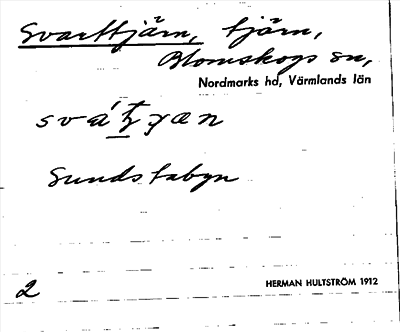 Svarttjärn, tjärn,
Blomskogs sn,
Nordmarks hd, Värmlands län
Sundstabyn
2
HERMAN HULTSTRÖM 1912